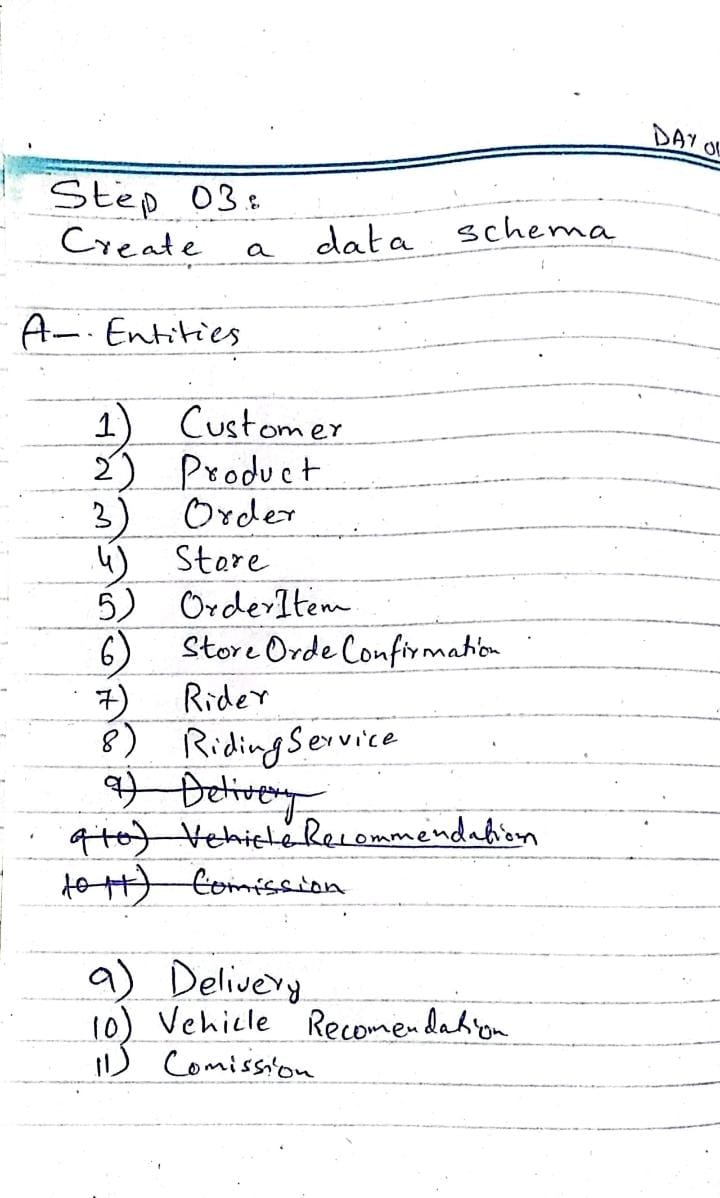 DAY 01
Step 03:
Create a data schema
A-. Entities
1) Customer
2) Product
3) Order
4) Store
5) OrderItem
6) StoreOrdeConfirmation
7) Rider
8) RidingService
9) Delivery
9 10) VehicleRecommendation
10 11) Comission
9) Delivery
10) Vehicle Recomendation
11) Comission